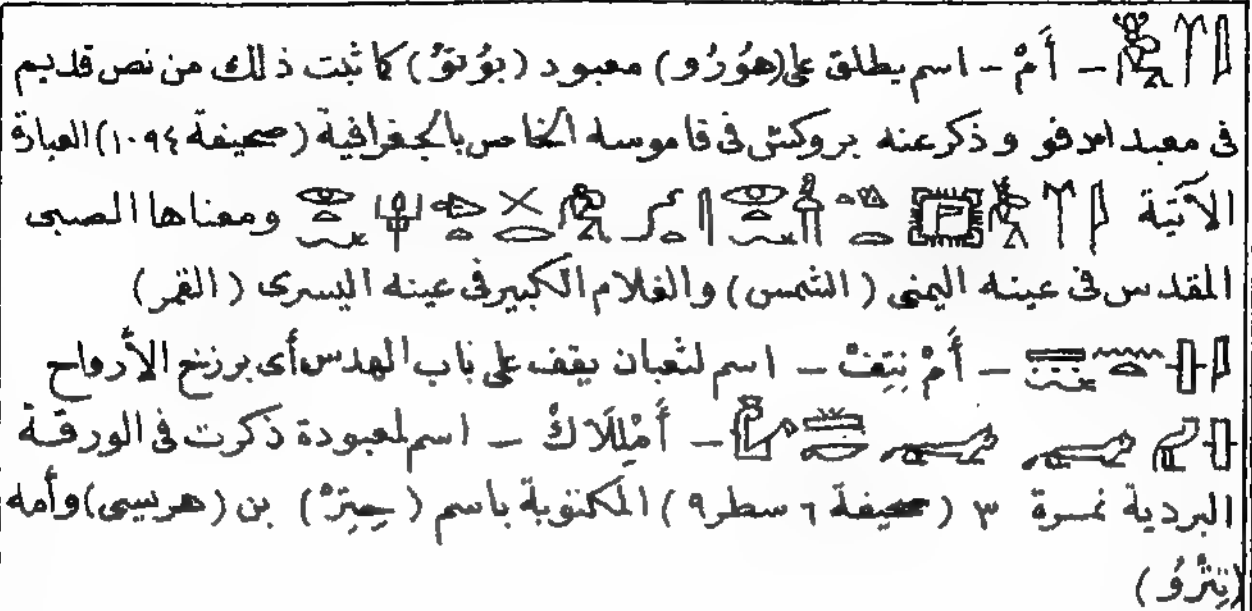 — أَمْ — اسم يطلق على (هوُرُو) معبود (بوُتوُ) كما ثبت ذلك من نص قديم
فى معبد ادفو وذكر عنه بروكش فى قاموسه الخاص بالجغرافية (صحيفة ١٠٩٤) العبارة
الآتية ومعناها الصبى
المقدس فى عينه اليمنى (الشمس) والغلام الكبير فى عينه اليسرى (القمر)
— أَمْ نِتِفْ — اسم لثعبان يقف على باب الهدس أى برزخ الأرواح
— أَمْلِلَاكْ — اسم لمعبودة ذكرت فى الورقة
البردية نمرة ٣ (صحيفة ٦ سطر ٩) المكتوبة باسم (حِتِرْ) بن (هرسيسى) وأمه
(تِتْرُو)